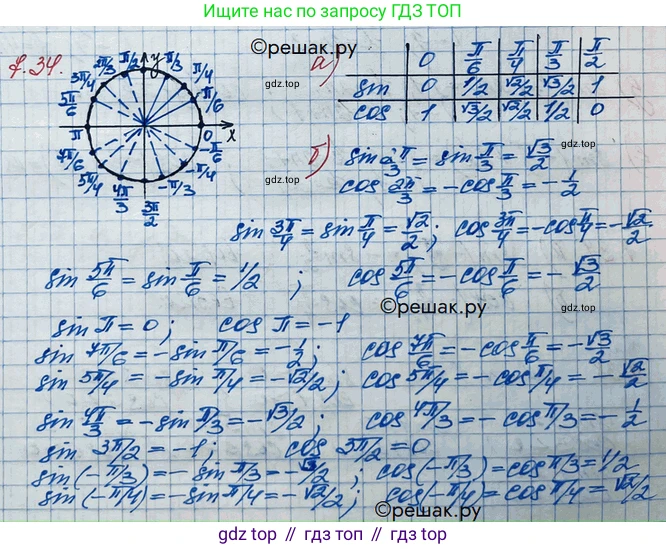 Ищите нас по запросу ГДЗ ТОП
7.34.
y
x
π/2
2π/3
π/3
3π/4
π/4
5π/6
π/6
π
0
7π/6
-π/6
5π/4
-π/4
4π/3
3π/2
-π/3
©решак.ру
gdz.top
а)
0 π/6 π/4 π/3 π/2
sin 0 1/2 √2/2 √3/2 1
cos 1 √3/2 √2/2 1/2 0
gdz.top
gdz.top
б) sin 2π/3 = sin π/3 = √3/2
cos 2π/3 = -cos π/3 = -1/2
gdz.top
gdz.top
sin 3π/4 = sin π/4 = √2/2; cos 3π/4 = -cos π/4 = -√2/2
sin 5π/6 = sin π/6 = 1/2; cos 5π/6 = -cos π/6 = -√3/2
©решак.ру
gdz.top
sin π = 0; cos π = -1
sin 7π/6 = -sin π/6 = -1/2; cos 7π/6 = -cos π/6 = -√3/2
sin 5π/4 = -sin π/4 = -√2/2; cos 5π/4 = -cos π/4 = -√2/2
sin 4π/3 = -sin π/3 = -√3/2; cos 4π/3 = -cos π/3 = -1/2
sin 3π/2 = -1; cos 3π/2 = 0
sin(-π/3) = -sin π/3 = -√3/2; cos(-π/3) = cos π/3 = 1/2
sin(-π/4) = -sin π/4 = -√2/2; cos(-π/4) = cos π/4 = √2/2
©решак.ру
gdz.top // гдз.топ // gdz.top // гдз.топ // gdz.top